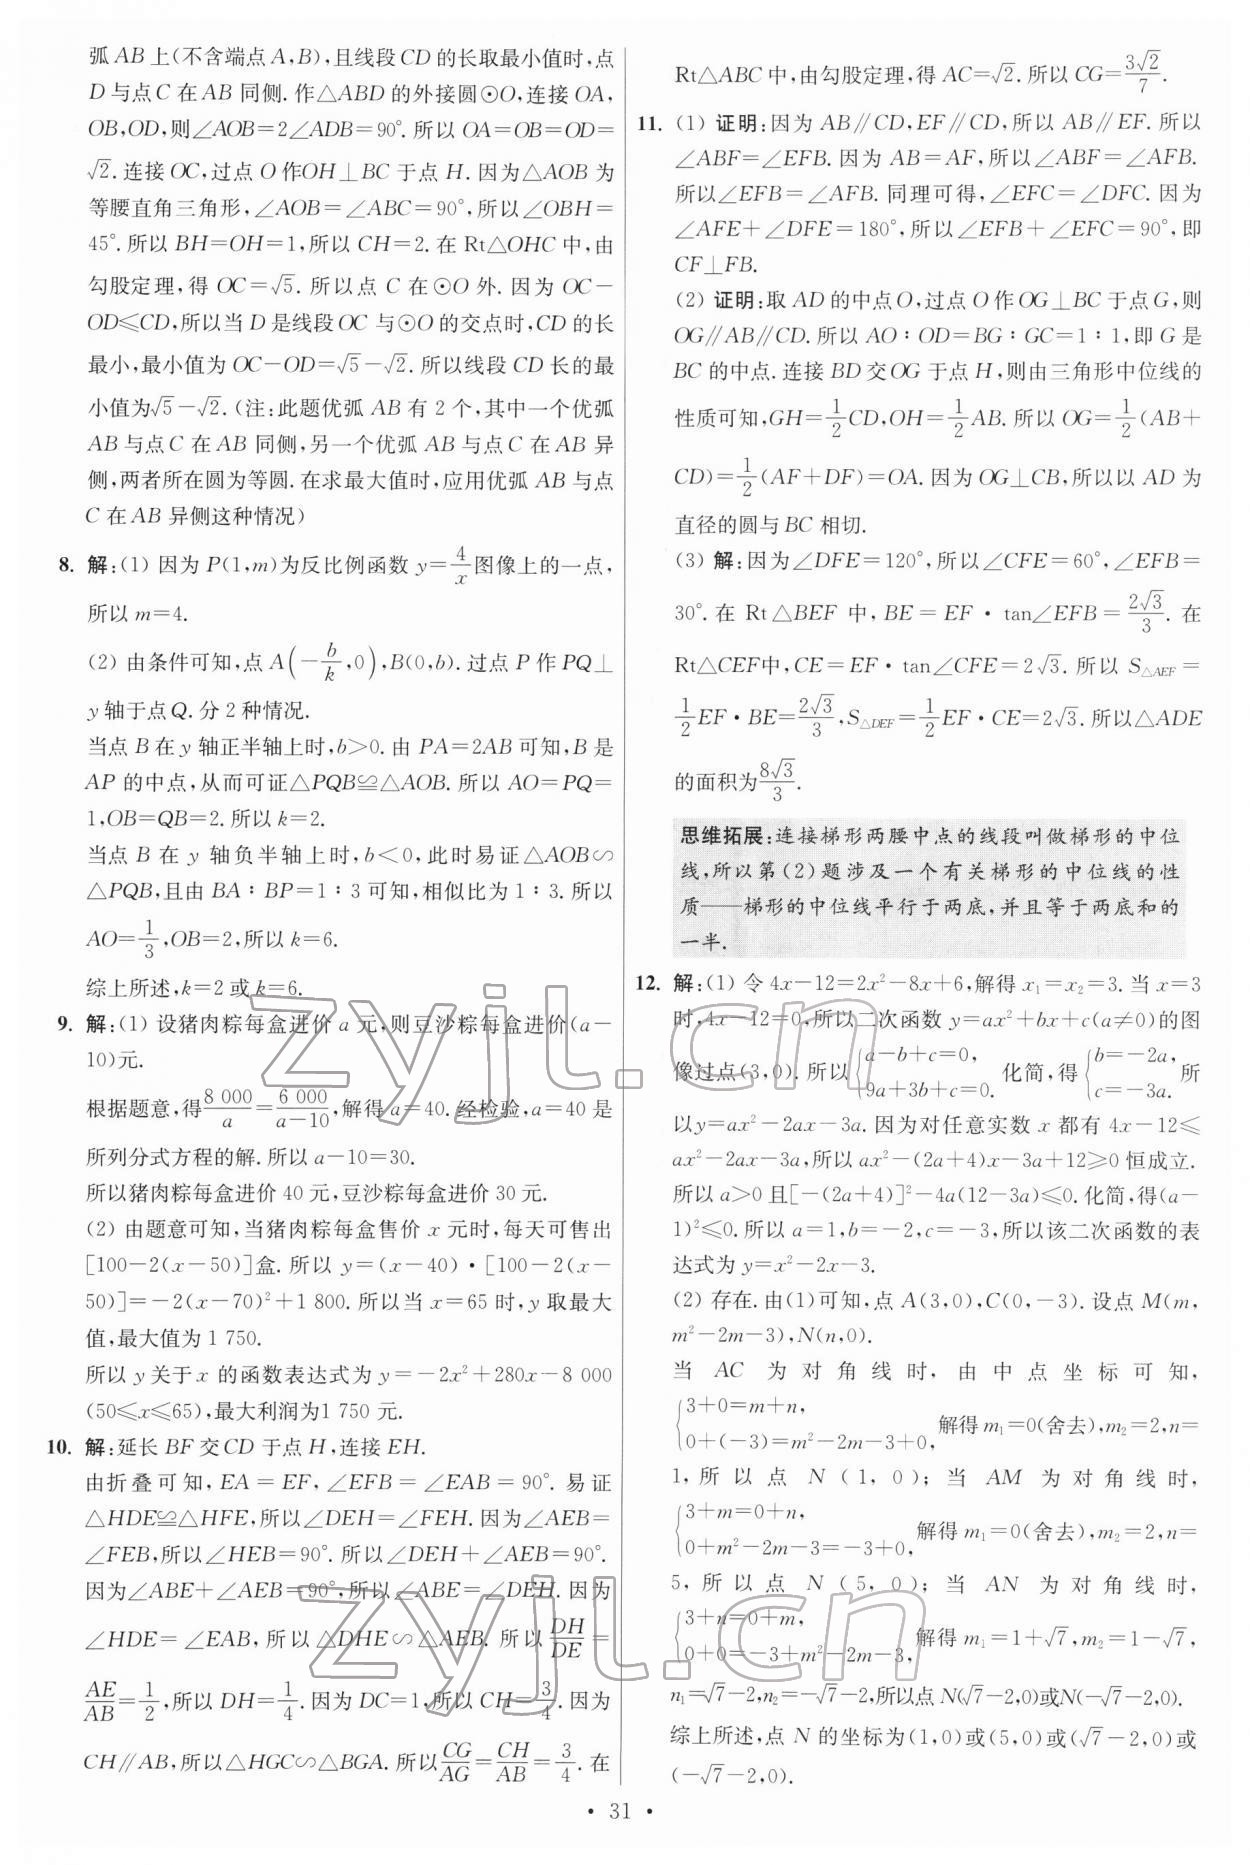 弧AB上(不含端点A,B),且线段CD的长取最小值时,点
D与点C在AB同侧.作△ABD的外接圆⊙O,连接OA,
OB,OD,则∠AOB=2∠ADB=90°.所以OA=OB=OD=
√2.连接OC,过点O作OH⊥BC于点H.因为△AOB为
等腰直角三角形,∠AOB=∠ABC=90°,所以∠OBH=
45°.所以BH=OH=1,所以CH=2.在Rt△OHC中,由
勾股定理,得OC=√5.所以点C在⊙O外.因为OC-
OD≤CD,所以当D是线段OC与⊙O的交点时,CD的长
最小,最小值为OC-OD=√5-√2.所以线段CD长的最
小值为√5-√2.(注:此题优弧AB有2个,其中一个优弧
AB与点C在AB同侧,另一个优弧AB与点C在AB异
侧,两者所在圆为等圆.在求最大值时,应用优弧AB与点
C在AB异侧这种情况)
8. 解:(1) 因为P(1,m)为反比例函数y=4/x图像上的一点,
所以m=4.
(2) 由条件可知,点A(-b/k,0),B(0,b).过点P作PQ⊥
y轴于点Q.分2种情况.
当点B在y轴正半轴上时,b>0.由PA=2AB可知,B是
AP的中点,从而可证△PQB≌△AOB.所以AO=PQ=
1,OB=QB=2.所以k=2.
当点B在y轴负半轴上时,b<0,此时易证△AOB∽
△PQB,且由BA∶BP=1∶3可知,相似比为1∶3.所以
AO=1/3,OB=2,所以k=6.
综上所述,k=2或k=6.
9. 解:(1) 设猪肉粽每盒进价a元,则豆沙粽每盒进价(a-
10)元.
根据题意,得8 000/a=6 000/(a-10),解得a=40.经检验,a=40是
所列分式方程的解.所以a-10=30.
所以猪肉粽每盒进价40元,豆沙粽每盒进价30元.
(2) 由题意可知,当猪肉粽每盒售价x元时,每天可售出
[100-2(x-50)]盒.所以y=(x-40)·[100-2(x-
50)]=-2(x-70)²+1 800.所以当x=65时,y取最大
值,最大值为1 750.
所以y关于x的函数表达式为y=-2x²+280x-8 000
(50≤x≤65),最大利润为1 750元.
10. 解:延长BF交CD于点H,连接EH.
由折叠可知,EA=EF,∠EFB=∠EAB=90°.易证
△HDE≌△HFE,所以∠DEH=∠FEH.因为∠AEB=
∠FEB,所以∠HEB=90°.所以∠DEH+∠AEB=90°.
因为∠ABE+∠AEB=90°,所以∠ABE=∠DEH.因为
∠HDE=∠EAB,所以△DHE∽△AEB.所以DH/DE=
AE/AB=1/2,所以DH=1/4.因为DC=1,所以CH=3/4.因为
CH∥AB,所以△HGC∽△BGA.所以CG/AG=CH/AB=3/4.在
Rt△ABC中,由勾股定理,得AC=√2.所以CG=3√2/7.
11. (1) 证明:因为AB∥CD,EF∥CD,所以AB∥EF.所以
∠ABF=∠EFB.因为AB=AF,所以∠ABF=∠AFB.
所以∠EFB=∠AFB.同理可得,∠EFC=∠DFC.因为
∠AFE+∠DFE=180°,所以∠EFB+∠EFC=90°,即
CF⊥FB.
(2) 证明:取AD的中点O,过点O作OG⊥BC于点G,则
OG∥AB∥CD.所以AO∶OD=BG∶GC=1∶1,即G是
BC的中点.连接BD交OG于点H,则由三角形中位线的
性质可知,GH=1/2CD,OH=1/2AB.所以OG=1/2(AB+
CD)=1/2(AF+DF)=OA.因为OG⊥CB,所以以AD为
直径的圆与BC相切.
(3) 解:因为∠DFE=120°,所以∠CFE=60°,∠EFB=
30°.在Rt△BEF中,BE=EF·tan∠EFB=2√3/3.在
Rt△CEF中,CE=EF·tan∠CFE=2√3.所以S△AEF=
1/2EF·BE=2√3/3,S△DEF=1/2EF·CE=2√3.所以△ADE
的面积为8√3/3.
思维拓展:连接梯形两腰中点的线段叫做梯形的中位
线,所以第(2)题涉及一个有关梯形的中位线的性
质——梯形的中位线平行于两底,并且等于两底和的
一半.
12. 解:(1) 令4x-12=2x²-8x+6,解得x₁=x₂=3.当x=3
时,4x-12=0,所以二次函数y=ax²+bx+c(a≠0)的图
像过点(3,0).所以{a-b+c=0, 9a+3b+c=0. 化简,得{b=-2a, c=-3a. 所
以y=ax²-2ax-3a.因为对任意实数x都有4x-12≤
ax²-2ax-3a,所以ax²-(2a+4)x-3a+12≥0恒成立.
所以a>0且[-(2a+4)]²-4a(12-3a)≤0.化简,得(a-
1)²≤0.所以a=1,b=-2,c=-3,所以该二次函数的表
达式为y=x²-2x-3.
(2) 存在.由(1)可知,点A(3,0),C(0,-3).设点M(m,
m²-2m-3),N(n,0).
当AC为对角线时,由中点坐标可知,
{3+0=m+n, 0+(-3)=m²-2m-3+0, 解得m₁=0(舍去),m₂=2,n=
1,所以点N(1,0);当AM为对角线时,
{3+m=0+n, 0+m²-2m-3=-3+0, 解得m₁=0(舍去),m₂=2,n=
5,所以点N(5,0);当AN为对角线时,
{3+n=0+m, 0+0=-3+m²-2m-3, 解得m₁=1+√7,m₂=1-√7,
n₁=√7-2,n₂=-√7-2,所以点N(√7-2,0)或N(-√7-2,0).
综上所述,点N的坐标为(1,0)或(5,0)或(√7-2,0)或
(-√7-2,0).
· 31 ·
zyjl.cn
zyjl.cn